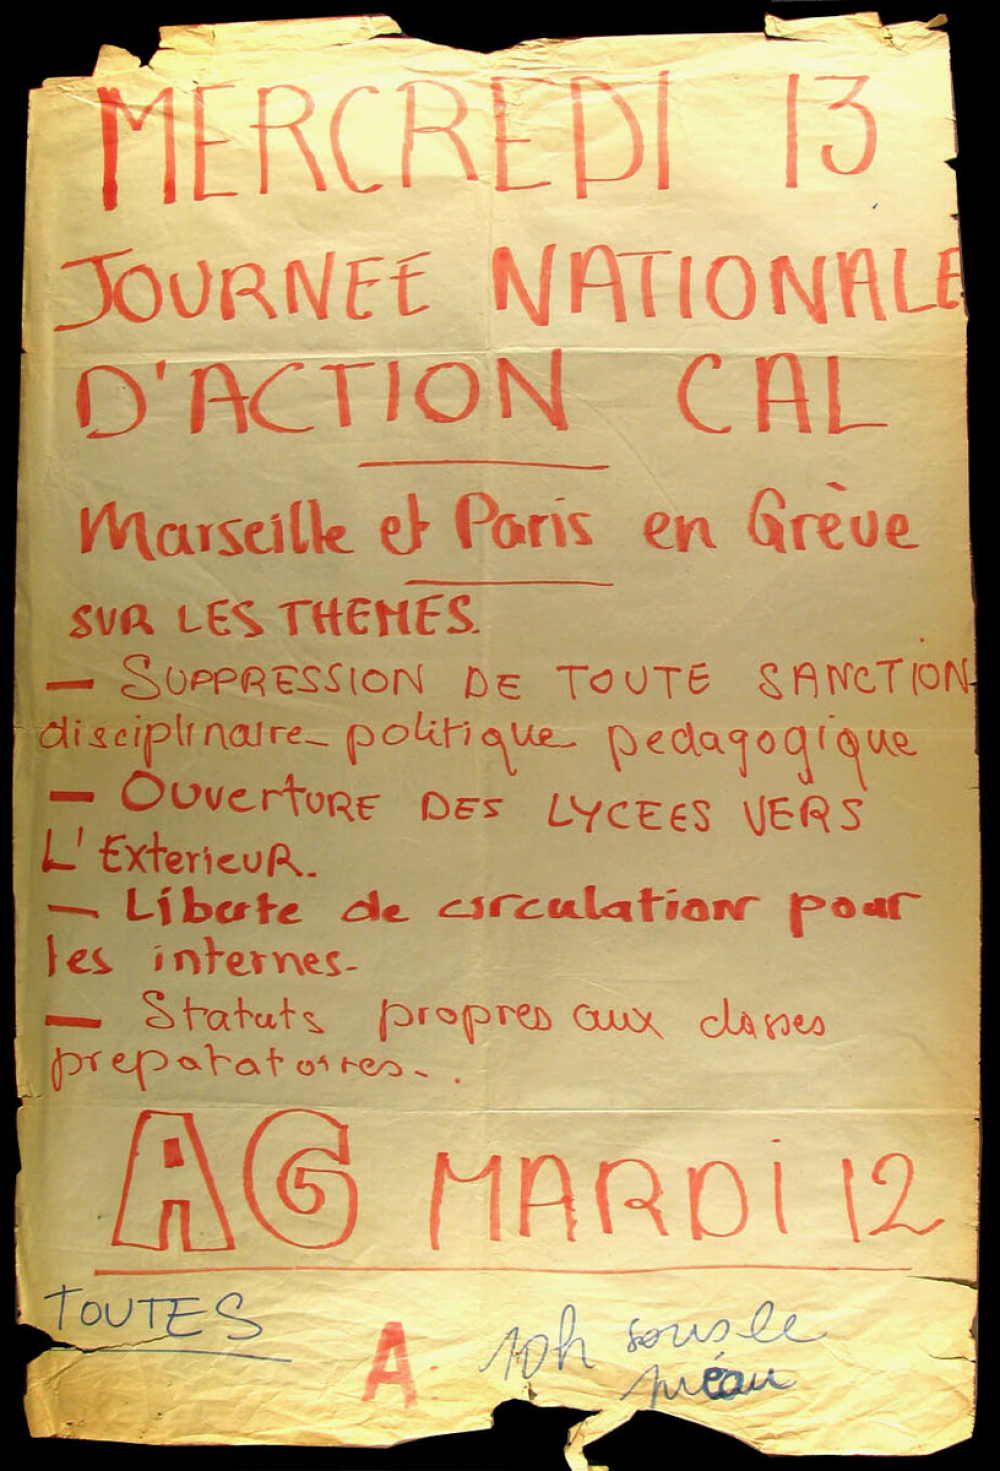 MERCREDI 13
JOURNEE NATIONALE
D'ACTION CAL
Marseille et Paris en Grève
SUR LES THEMES.
— SUPPRESSION DE TOUTE SANCTION
disciplinaire_ politique_ pedagogique
— OuvertURE DES LYCEES VERS
L'ExterieuR.
— Liberte de circulation pour
les internes-
— Statuts propres aux classes
preparatoires-.
AG MARDI 12
TOUTES
A. 10h sous le
préau